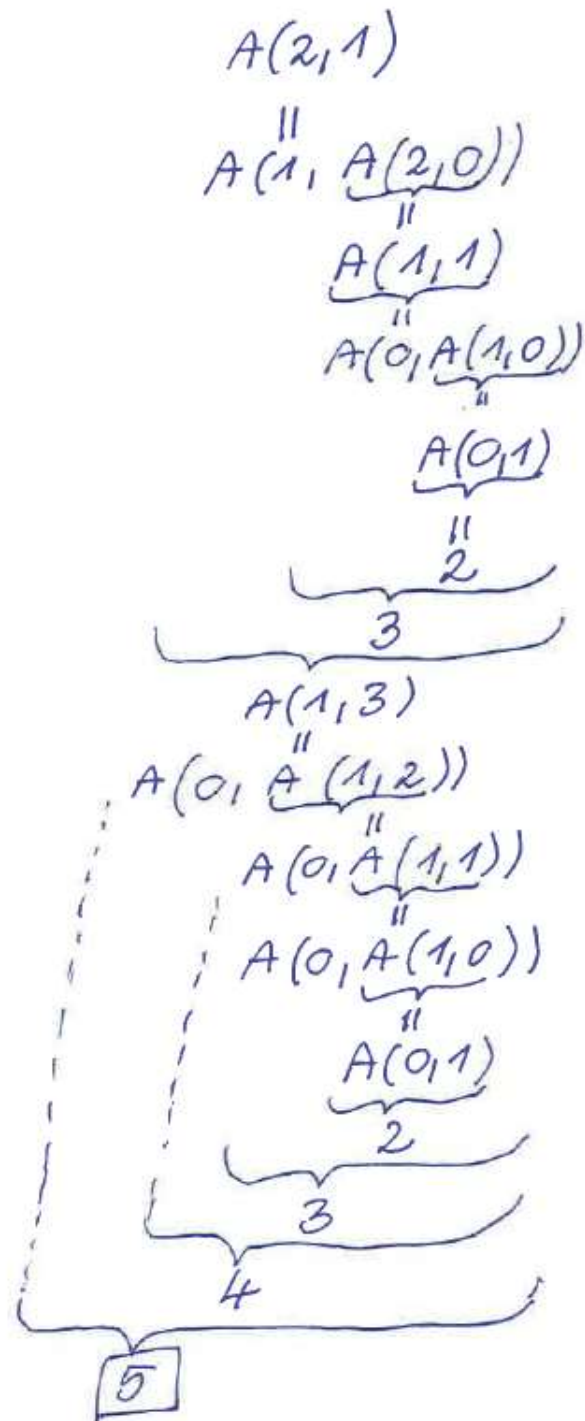 A(2,1)
=
A(1, A(2,0))
=
A(1,1)
=
A(0,A(1,0))
=
A(0,1)
=
2
3
A(1,3)
=
A(0, A(1,2))
=
A(0,A(1,1))
=
A(0,A(1,0))
=
A(0,1)
2
3
4
5